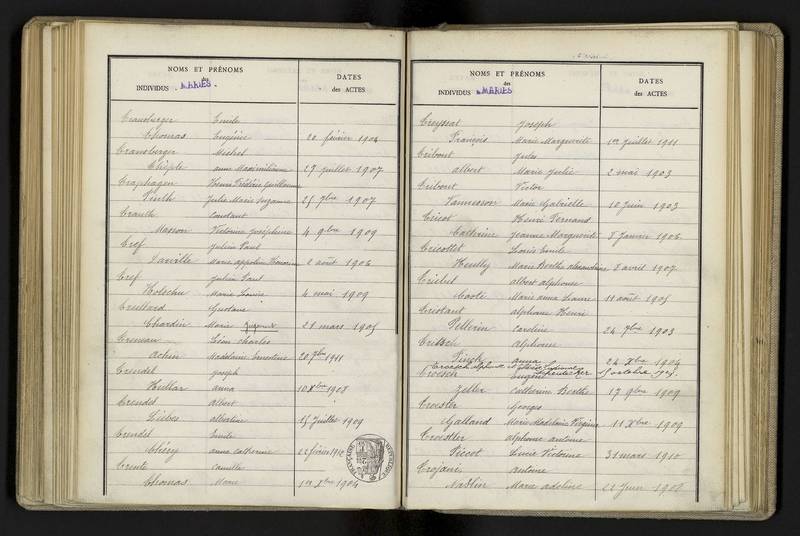 NOMS ET PRÉNOMS
des
INDIVIDUS MARIÉS.
DATES
des ACTES
Cransberger Emile
Thomas Eugénie 20 février 1904
Cransberger Michel
anne Maximilienne 27 juillet 1907
Craphagen Henri Frédéric Guillaume
Julie Marie Suzanne 25 7bre 1907
Constant
Masson Victorine Joséphine 4 9bre 1909
Cref Julien Paul
Marie appoline 2 août 1906
Cref Julien Paul
Holschu Marie Louise 4 mai 1909
Gustave
Chardin Marie 28 mars 1905
Léon Charles
Madeleine Ernestine 20 7bre 1911
Crendel Joseph
Anna 10 Xbre 1908
Crendel Albert
Albertine 15 juillet 1909
Crendel Emile
anne Catherine 22 février 1910
Camille
Thomas Marie 1er Xbre 1904
NOMS ET PRÉNOMS
des
INDIVIDUS MARIÉS
DATES
des ACTES
Creyssat Joseph
François Marie Marguerite 1er juillet 1911
Cribout Jules
albert Marie Julie 2 mai 1903
Cribout Victor
Vannesson Marie Gabrielle 10 juin 1903
Cricot Henri Fernand
Catherine Jeanne Marguerite 8 Janvier 1906
Cricottet Louis Emile
Marie Berthe 8 avril 1907
albert alphonse
Marie anna Laure 11 août 1905
Cristant alphonse Henri
Pellerin Caroline 24 7bre 1903
Critsch Alphonse
Finck anna 24 Xbre 1904
Eugène 15 octobre
Zeller Catherine Berthe 17 9bre 1909
Georges
Galland Marie Madeleine Virginie 11 Xbre 1909
alphonse antoine
Piccot Lucie Victorine 31 mars 1910
Crojani Antoine
Marie adeline 22 Juin 1908